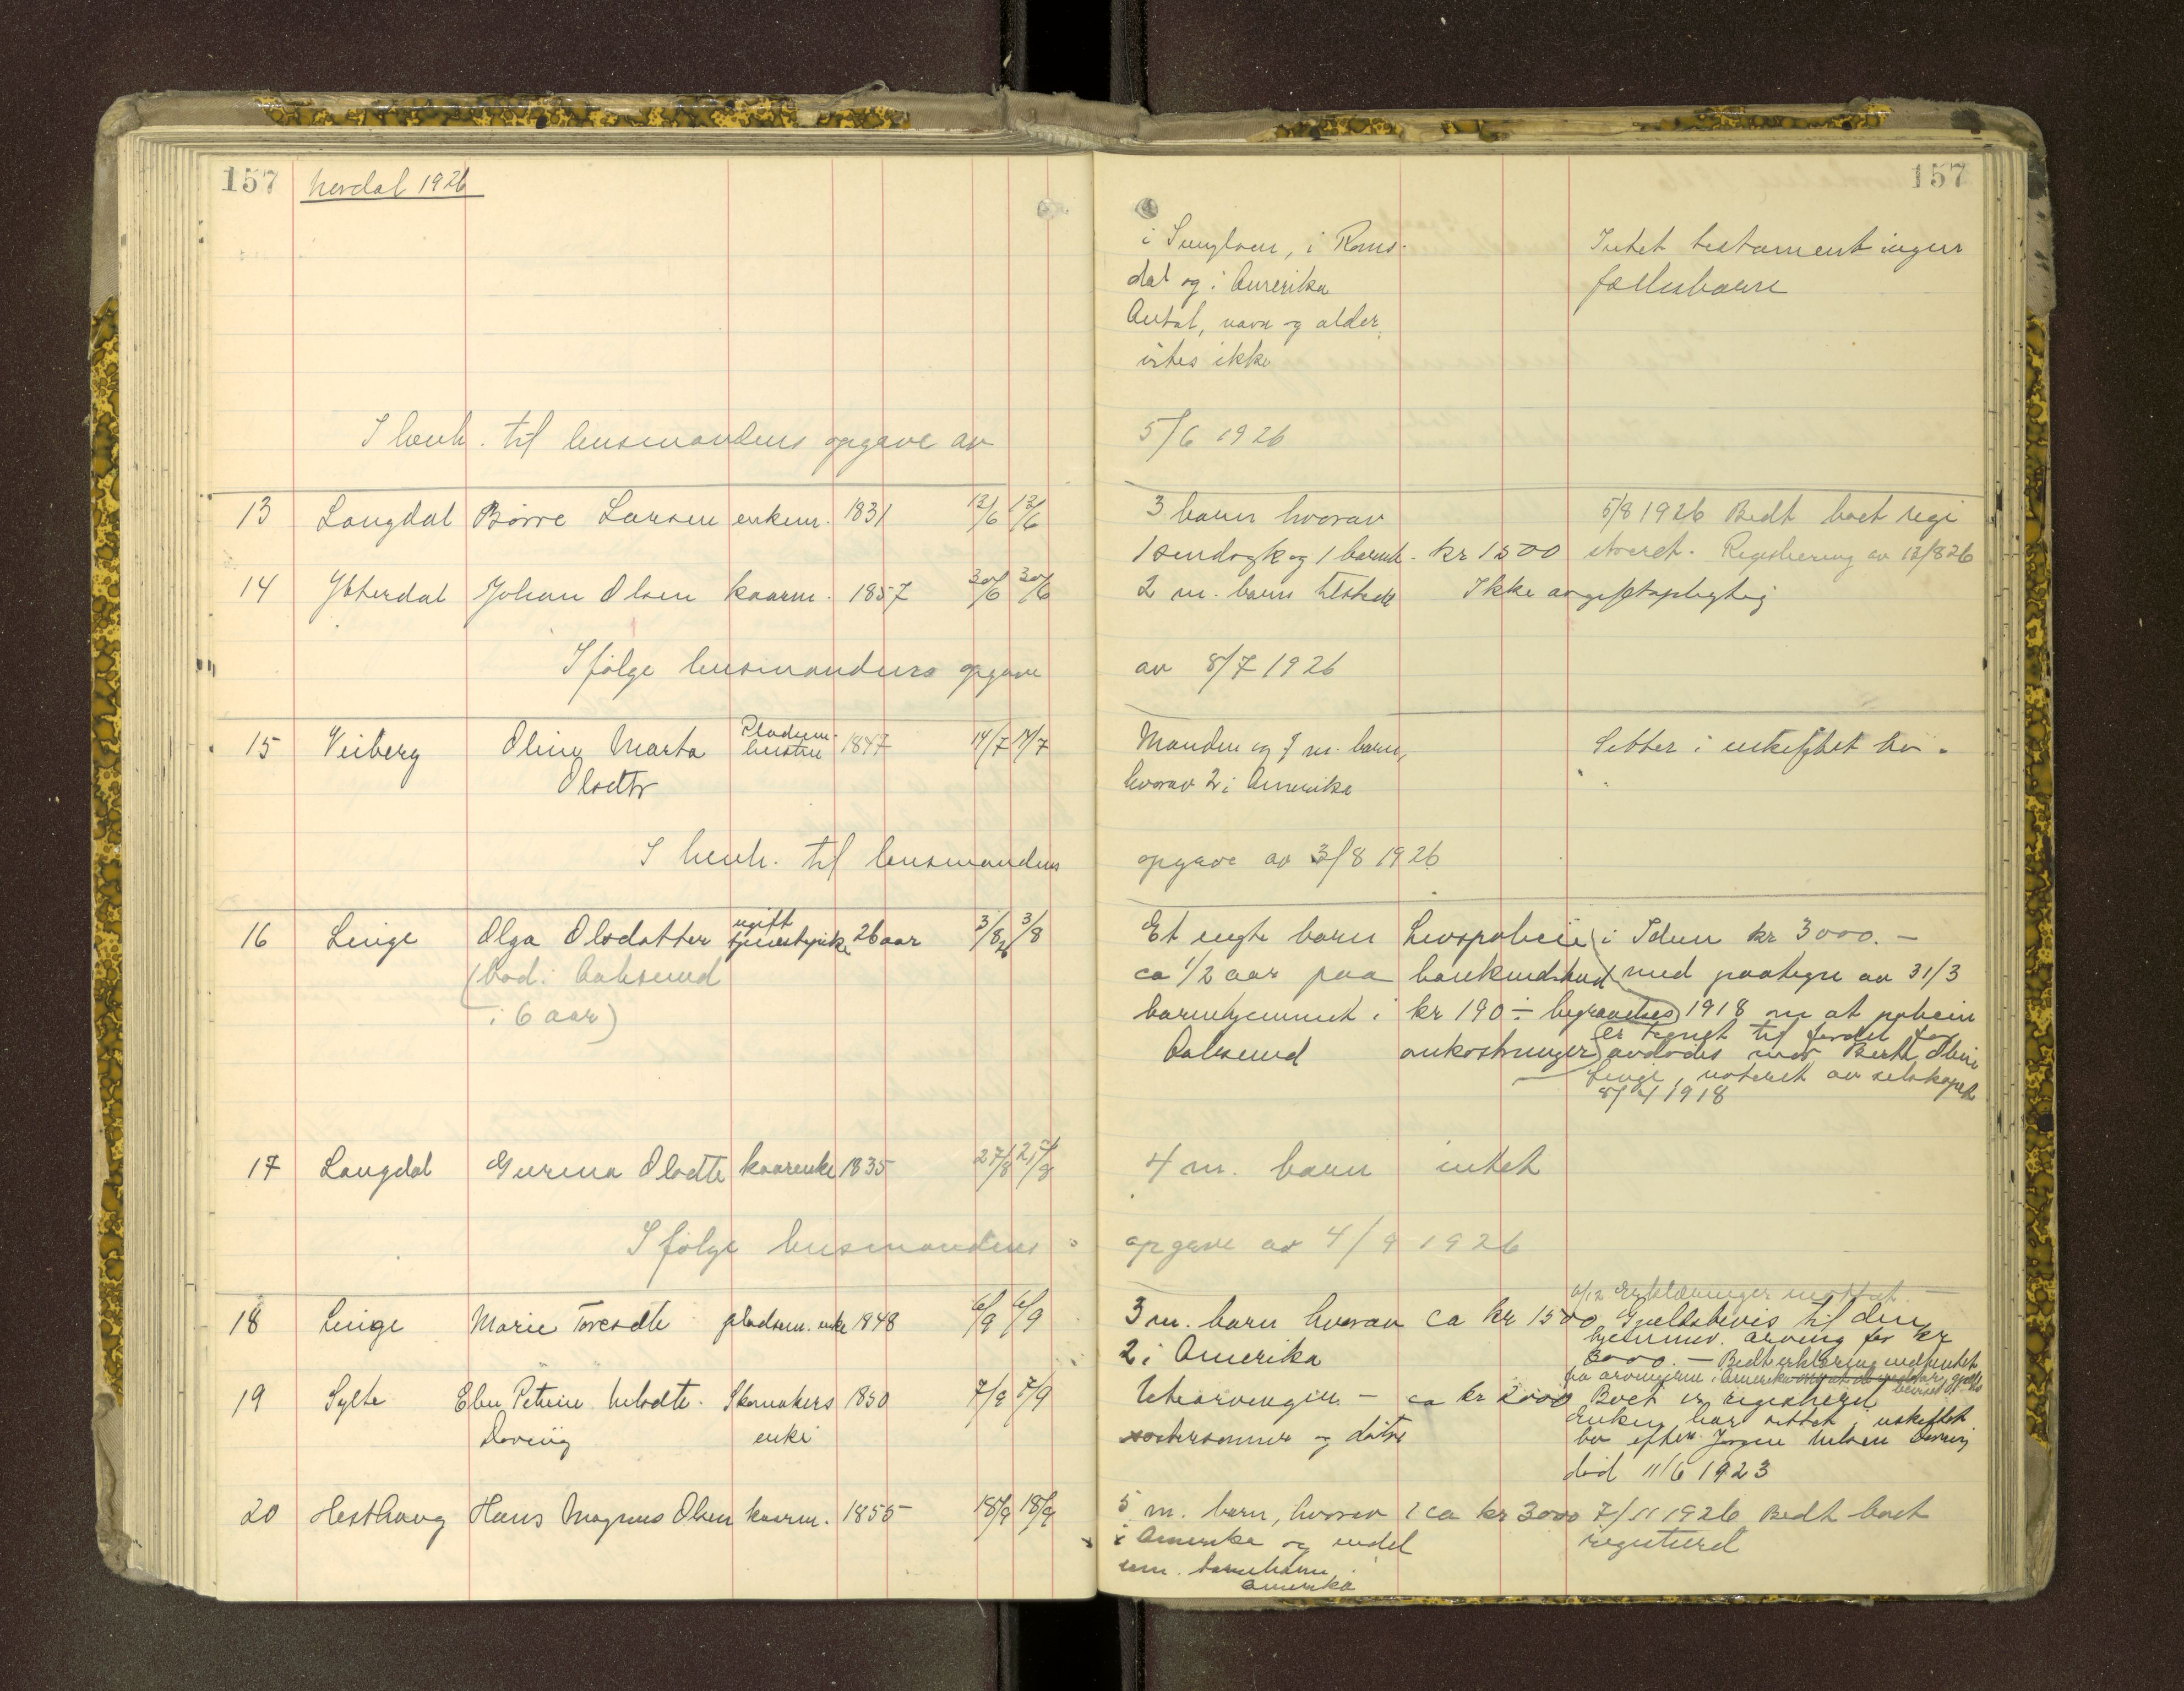 157 Nordal 1926 157
i Sunylven, i Roms-
dal og i Amerika
Antal, navn og alder
vites ikke
Intet testament ingen
fællesbarn
I henh. til lensmandens opgave av 5/6 1926
13 Langdal Børre Larsen enkem. 1831 12/6 12/6 3 barn hvorav 5/8 1926 Bedt boet regi
1 sindsyk og 1 barneb. kr 1500 streret. Registrering av 12/8 26
14 Ytterdal Johan Olsen kaarm. 1857 30/6 30/6 2 m. barn tilstede Ikke avgiftspligtig
Ifølge lensmandens opgave av 8/7 1926
15 Veiberg Oline Marta Pladsm. 1847 14/7 14/7 Manden og 7 m. barn, Sitter i uskiftet bo.
Olsdtr hustru hvorav 2 i Amerika
I henh. til lensmandens opgave av 3/8 1926
16 Linge Olga Olsdatter ugift tjenestepike 26 aar 3/8 26 3/8 Et uegte barn Livspolice i Idun kr 3000.–
(bod. i Aalesund ca 1/2 aar paa bankindskud med paategn av 31/3
i 6 aar) barnehjemmet i kr 190 ÷ begravelses 1918 om at policen
er tegnet til fordel for
Aalesund omkostninger avdødes mor Berte Oline
Linge, noteret av selskapet
8/4 1918
17 Langdal Gurina Olsdtr kaarenke 1835 27/8 27/8 4 m. barn intet
Ifølge lensmandens opgave av 4/9 1926
6/12 Erklæringer mottat.
18 Linge Marie Toresdtr pladsm. enke 1848 6/9 6/9 3 m. barn hvorav ca kr 1500 Gjældsbevis til den
2 i Amerika hjemmev. arving for kr
3000.– Bedt erklæring indhentet
fra arvingerne i Amerika
19 Sylte Eben Petrine Nilsdtr. Skomakers 1850 7/9 7/9 Utearvinger – ca kr 2000 Boet er registrert
Døving enke søstersønner og døtre Enken har sittet i uskiftet
bo efter Jørgen Nilsen Døving
død 11/6 1923
20 Hesthaug Hans Magnus Olsen kaarm. 1855 18/9 18/9 5 m. barn, hvorav 2 ca kr 3000 7/11 1926 Bedt boet
i Amerika og endel registrerd
um. barnebarn i
Amerika